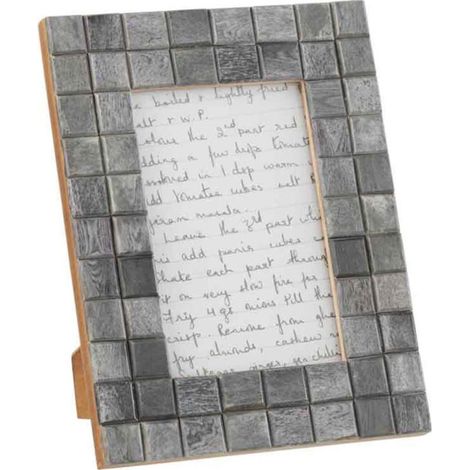 boiled & lightly fried
salt & W.P.
the 2nd part red
adding a few drops tomato
in 1 dsp warm
add tomatoe cubes salt &
garam masala.
Leave the 3rd part white
add panir cubes
each part through
it on very slow fire for
Fry 4 gs onions till the
crisp. Remove from
fry almonds, cashew